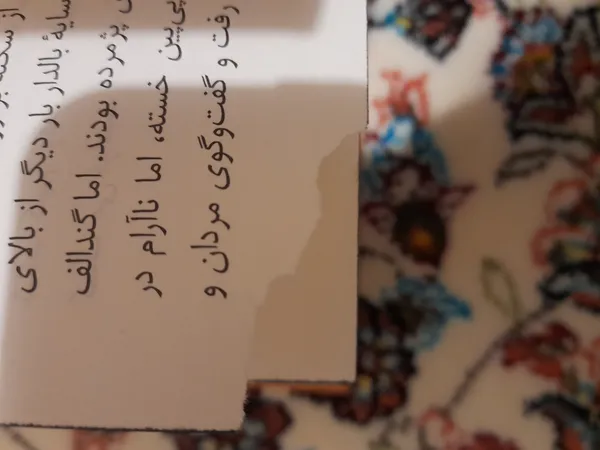 از سکنه
سایهٔ بالدار بار دیگر از بالای
پژمرده بودند. اما گندالف
پی‌پین خسته، اما ناآرام در
رفت و گفت‌وگوی مردان و